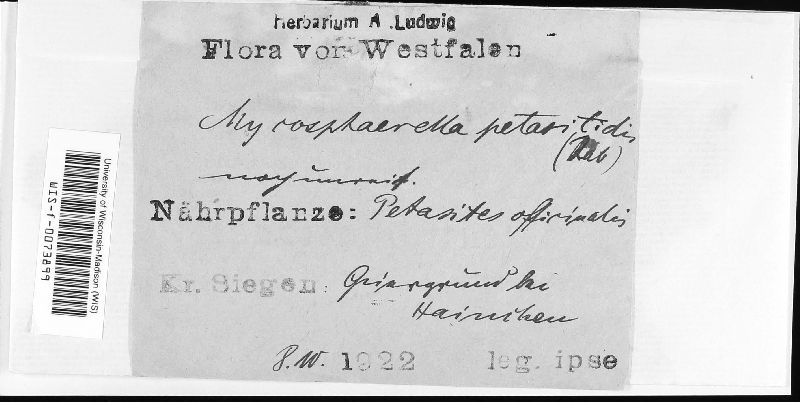 Herbarium A. Ludwig
Flora von Westfalen
Mycosphaerella petasitidis
(Rab)
noch unreif.
Nährpflanze: Petasites officinalis
Kr. Siegen: bei
Hainchen
8. IV. 1922 leg. ipse
University of Wisconsin-Madison (WIS)
WIS-f-0073899